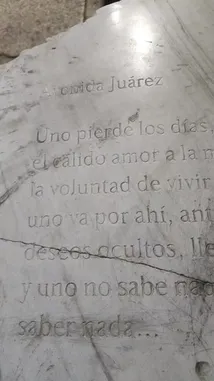 Juárez
Uno pierde los días,
el cálido amor a la
la voluntad de vivir
uno va por ahí,
deseos ocultos,
y uno no sabe
saber nada...